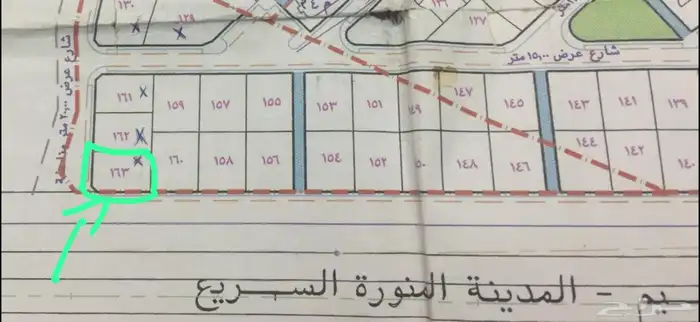 ١٣٠ ١٢٩ م ٢٤ ١٢٧
شارع عرض ١٥,٠٠ متر
شارع عرض ٢٠,٠٠ متر
١٦١ ١٥٩ ١٥٧ ١٥٥ ١٥٣ ١٥١ ١٤٩ ١٤٧ ١٤٥ ١٤٣ ١٤١ ١٣٩
١٦٢
١٦٣ ١٦٠ ١٥٨ ١٥٦ ١٥٤ ١٥٢ ٥٠ ١٤٨ ١٤٦ ١٤٤ ١٤٢ ١٤٠
يم - المدينة المنورة السريع
حراج